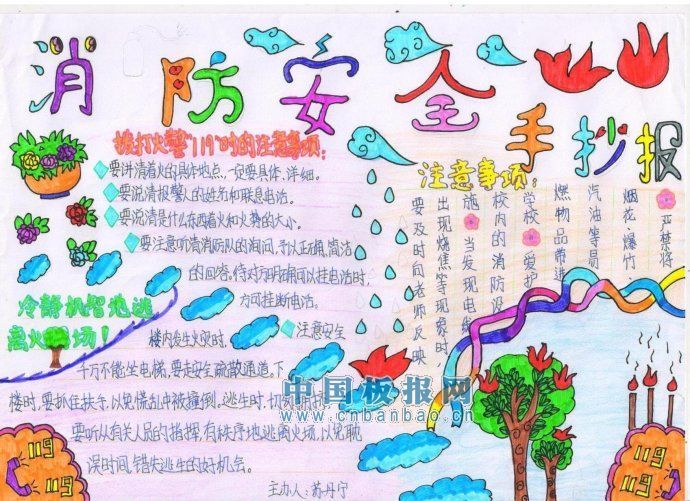 消防安全
手抄报
拨打火警"119"时的注意事项:
要讲清着火的具体地点,一定要具体、详细。
要说清报警人的姓名和联息电话。
要说清是什么东西着火和火势的大小。
要注意听清消防队的询问,予以正确、简洁
的回答,待对方明确可以挂电话时,
方可挂断电话。
冷静机智地逃
离火场!
注意安全
楼内发生火灾时,
千万不能坐电梯,要走安全疏散通道,下
楼时,要抓住扶手,以免慌乱中被撞倒。逃生时,切
要听从有关人员的指挥,有秩序地逃离火场,以免耽
误时间,错失逃生的好机会。
主办人:苏丹宁
注意事项:
严禁将
烟花、爆竹
汽油等易
燃物品带进
学校 爱护
校内的消防设
施 当发现电线
出现烧焦等现象时
要及时向老师反映
119
119
119
119
中国板报网
www.cnbanbao.cn